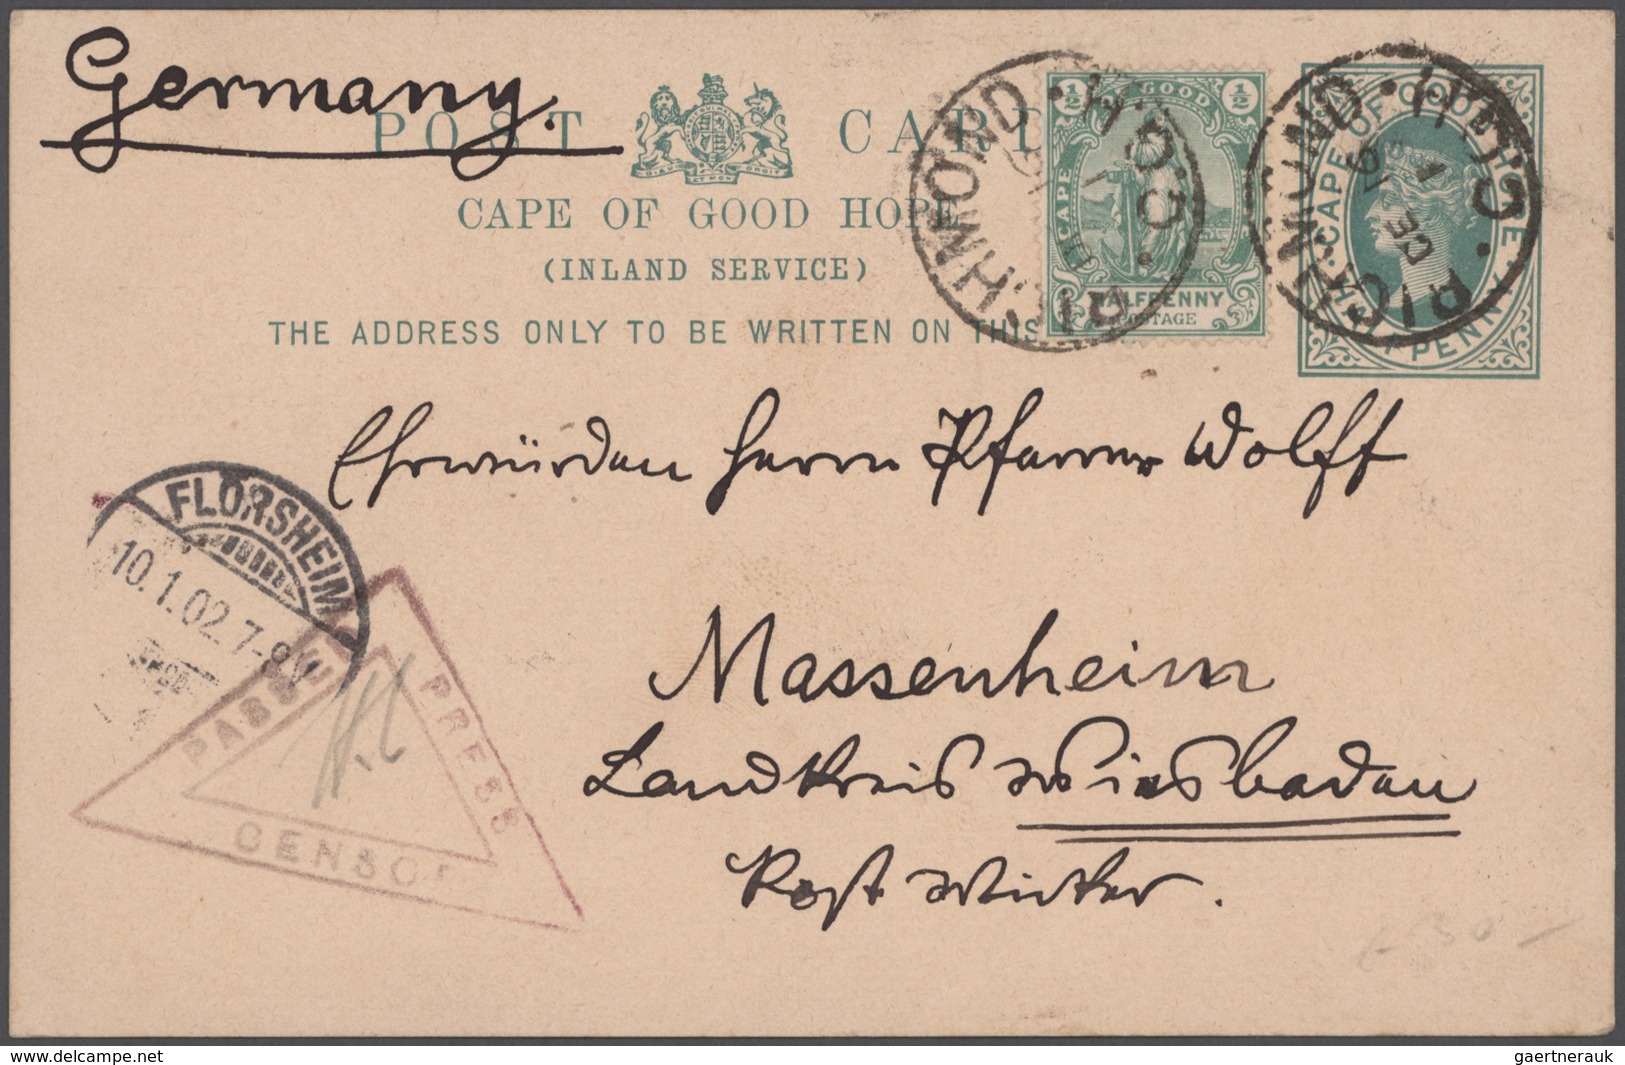 Germany.
POST CARD
CAPE OF GOOD HOPE
(INLAND SERVICE)
THE ADDRESS ONLY TO BE WRITTEN ON THIS
1/2 GOOD 1/2
CAPE
HALFPENNY
POSTAGE
RICHMOND
RICHMOND
DE
CAPE OF GOOD HOPE
HALFPENNY
Ehrwürden Herrn Pfarrer Wolff
FLÖRSHEIM
10.1.02.7-8V
PASSED PRESS
CENSOR
Massenheim
Landkreis Wiesbaden
Post Wicker.
delcampe.net
gaertnerauk